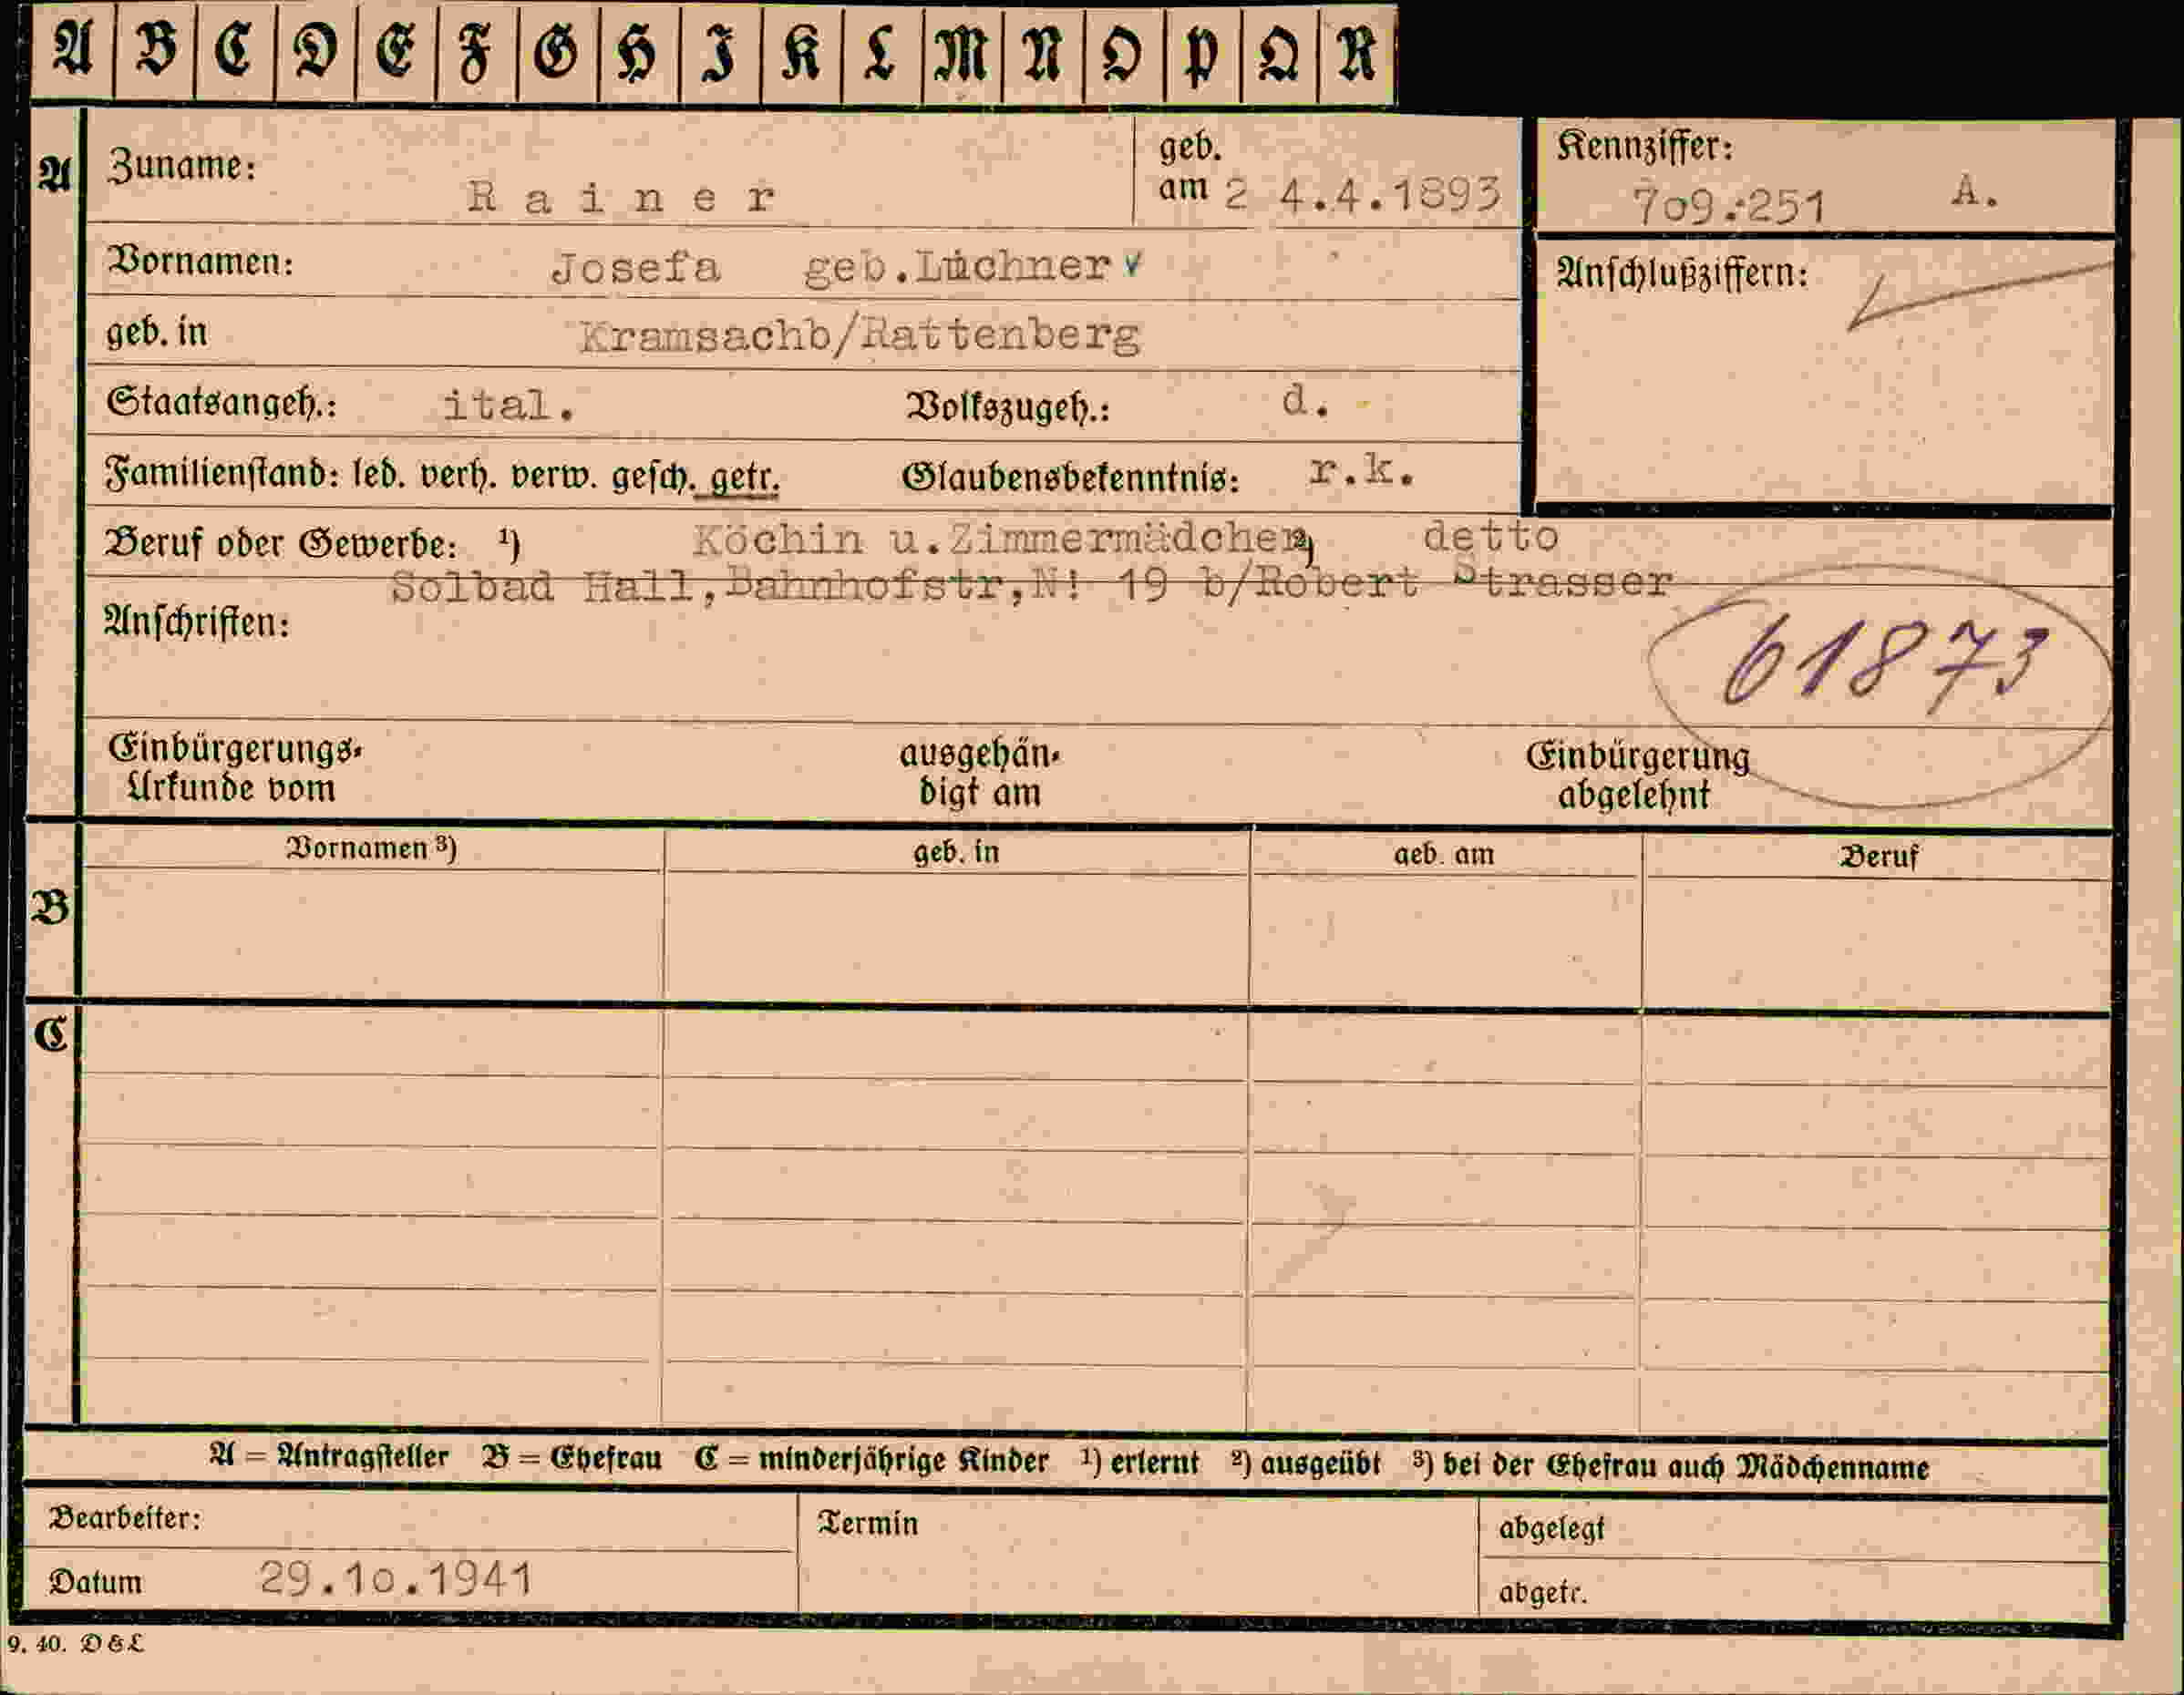 A B C D E F G H I K L M N O P Q R
A Zuname: Rainer geb. am 24.4.1893 Kennziffer: 709.:251 A.
Vornamen: Josefa geb.Lüchner v
Anschlußziffern:
geb. in Kramsachb/Rattenberg
Staatsangeh.: ital. Volkszugeh.: d.
Familienstand: led. verh. verw. gesch. getr. Glaubensbekenntnis: r.k.
Beruf oder Gewerbe: ¹) Köchin u.Zimmermädchen ²) detto
Solbad Hall,Bahnhofstr,N! 19 b/Robert Strasser
Anschriften:
61873
Einbürgerungs-Urkunde vom ausgehän-digt am Einbürgerung abgelehnt
B Vornamen ³) geb. in geb. am Beruf
C
A = Antragsteller B = Ehefrau C = minderjährige Kinder ¹) erlernt ²) ausgeübt ³) bei der Ehefrau auch Mädchenname
Bearbeiter: Termin abgelegt
Datum 29.10.1941 abgetr.
9. 40. D & L